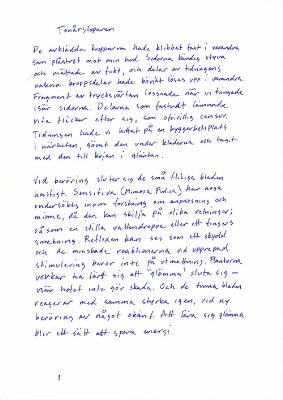 Tonårsloparen
De avklädda kropparna hade klibbat fast i varandra
som plåstret mot min hud. Sidorna kändes styva
och mättade av fukt, och delar av tidningens
nakna kroppsdelar hade börjat lösas upp i varandra.
Fragment av trycksvärtan lossnade när vi tvingade
isär sidorna. Delarna som fastnat lämnade
vita fläckar efter sig, som ofrivillig censur.
Tidningen hade vi hittat på en byggarbetsplats
i närheten, gömt den under kläderna och tagit
med den till kojan i gläntan.
Vid beröring sluter sig de små flikiga bladen
hastigt. Sensitiva (Mimosa Pudica) har noga
undersökts inom forskning om anpassning och
minne, då den kan skilja på olika retningar;
såsom en stilla vattendroppe eller ett fingers
smekning. Reflexen kan ses som ett skydd
och de minskade reaktionerna vid upprepad
stimulering beror inte på utmattning. Plantorna
verkar ha lärt sig att "glömma" sluta sig –
när hotet inte gör skada. Och de tunna bladen
reagerar med samma styrka igen, vid ny
beröring av något okänt. Att lära sig glömma
blir ett sätt att spara energi.
1